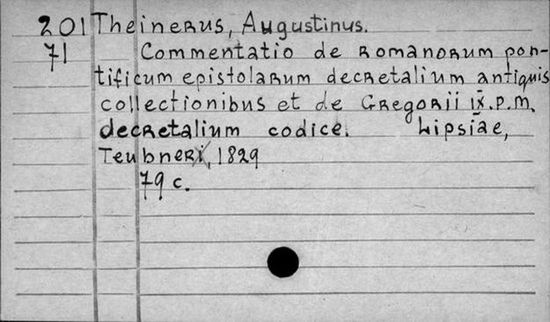 201 Theinerus, Augustinus.
71 Commentatio de romanorum pon-
tificum epistolarum decretalium antiquis
collectionibus et de Gregorii IX. P. M.
decretalium codice. Lipsiae,
Teubneri, 1829
79 c.